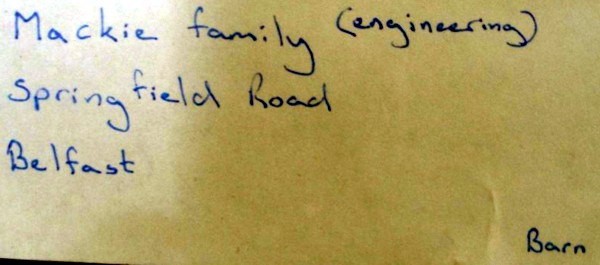 Mackie family (engineering)
Springfield Road
Belfast
Barn